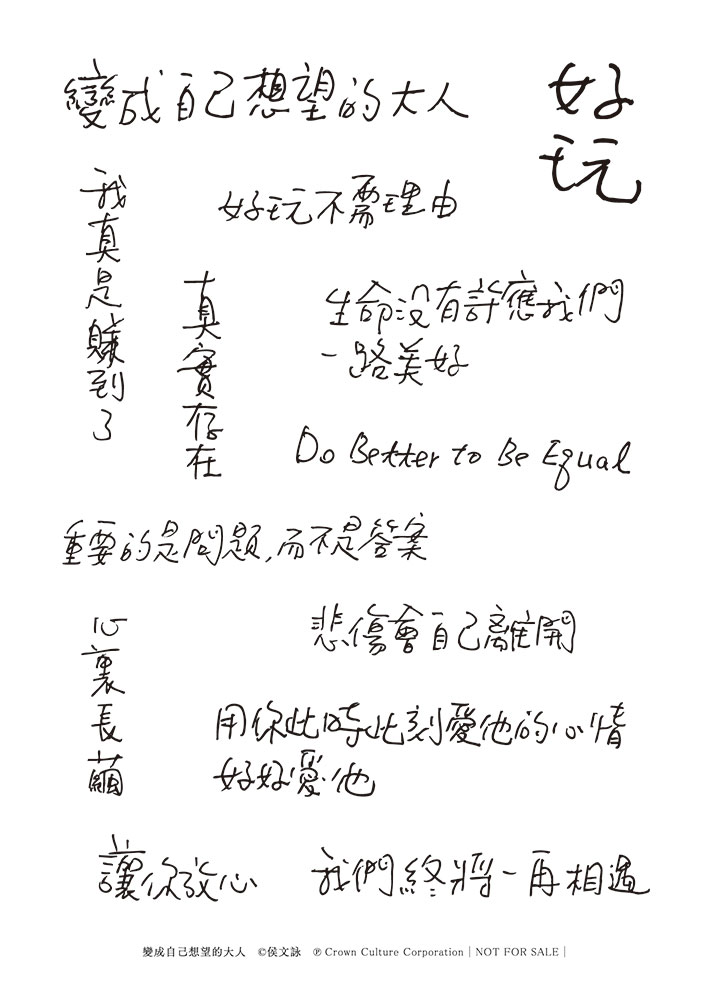 變成自己想望的大人
好玩
我真是賺到了
好玩不需理由
真實存在
生命没有許應我們
一路美好
Do Better to Be Equal
重要的是問題,而不是答案
心裏長繭
悲傷會自己離開
用你此時此刻愛他的心情
好好愛他
讓你放心
我們終將一再相遇
變成自己想望的大人 ©侯文詠 ℗ Crown Culture Corporation｜NOT FOR SALE｜